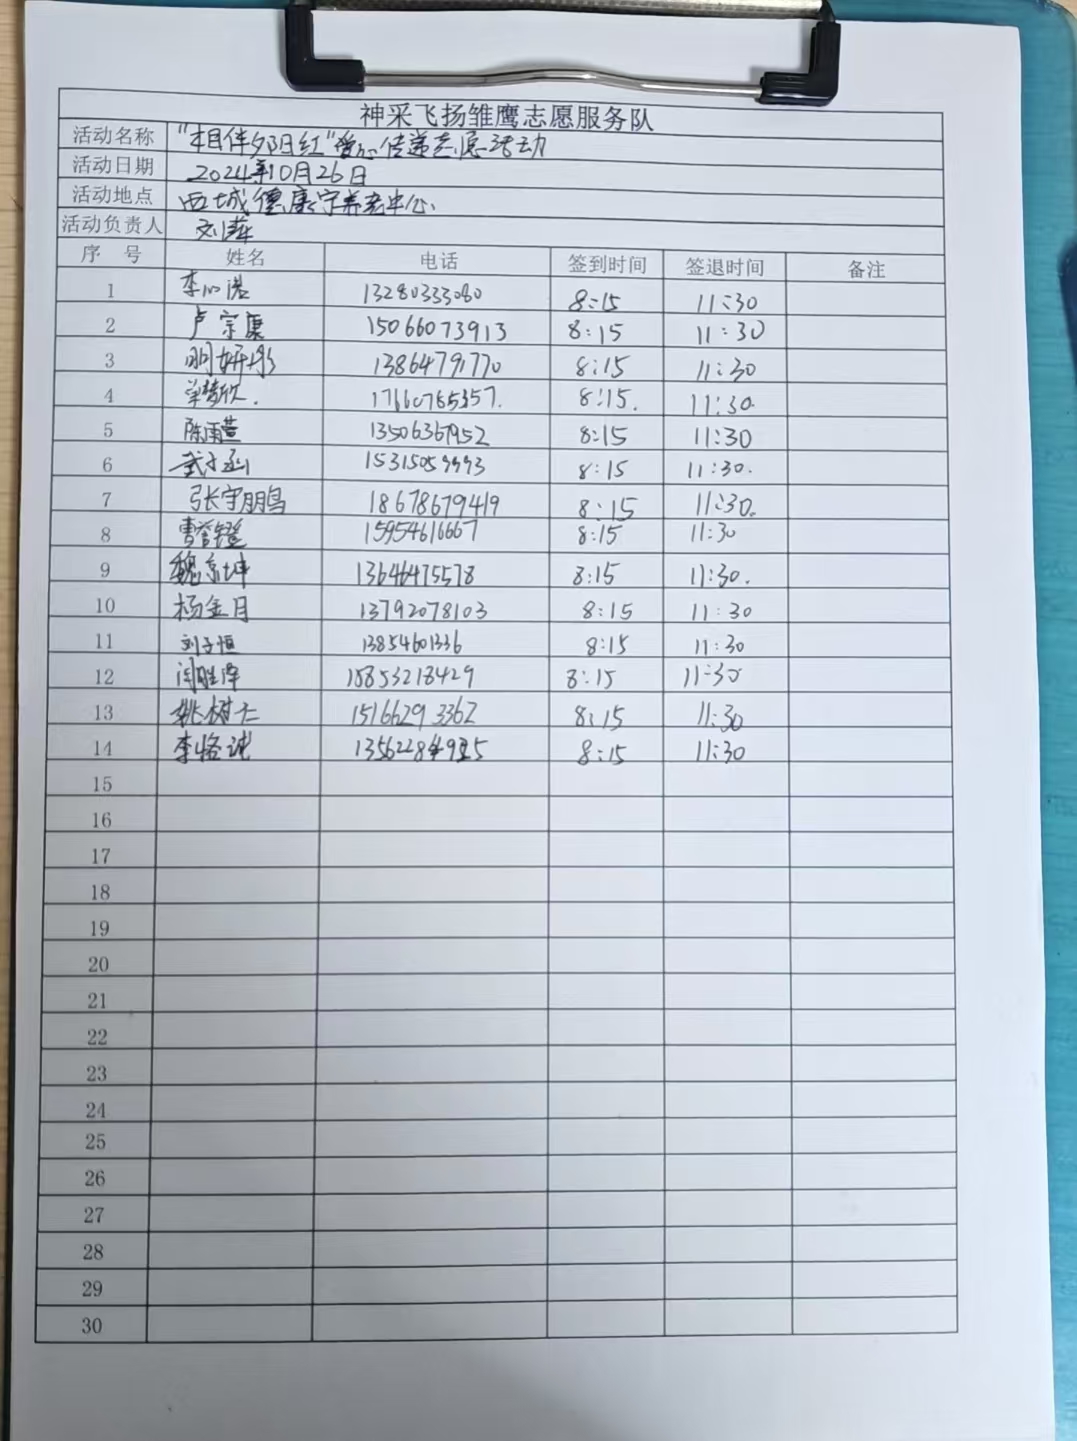 神采飞扬雏鹰志愿服务队
活动名称 "相伴夕阳红"爱心传递志愿活动
活动日期 2024年10月26日
活动地点 西城德康宁养老中心
活动负责人 刘萍
序 号 姓名 电话 签到时间 签退时间 备注
1 李心洁 13280333080 8:15 11:30
2 卢宗康 15066073913 8:15 11:30
3 明妍彤 13864791770 8:15 11:30
4 单梦欣. 17660785357. 8:15. 11:30.
5 陈雨萱 13506367952 8:15 11:30
6 武子函 15315059993 8:15 11:30.
7 张宇鹏 18678679419 8:15 11:30.
8 曹誉铠 15954616667 8:15 11:30
9 魏京坤 13646475578 8:15 11:30.
10 杨金月 13792078103 8:15 11:30
11 刘子恒 13854601336 8:15 11:30
12 闫胜泽 15853218429 8:15 11:30
13 姚树仁 15166293362 8:15 11:30
14 李恪诚 8:15 11:30
15
16
17
18
19
20
21
22
23
24
25
26
27
28
29
30